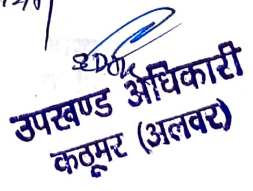 SDM
उपखण्ड अधिकारी
कठूमर (अलवर)